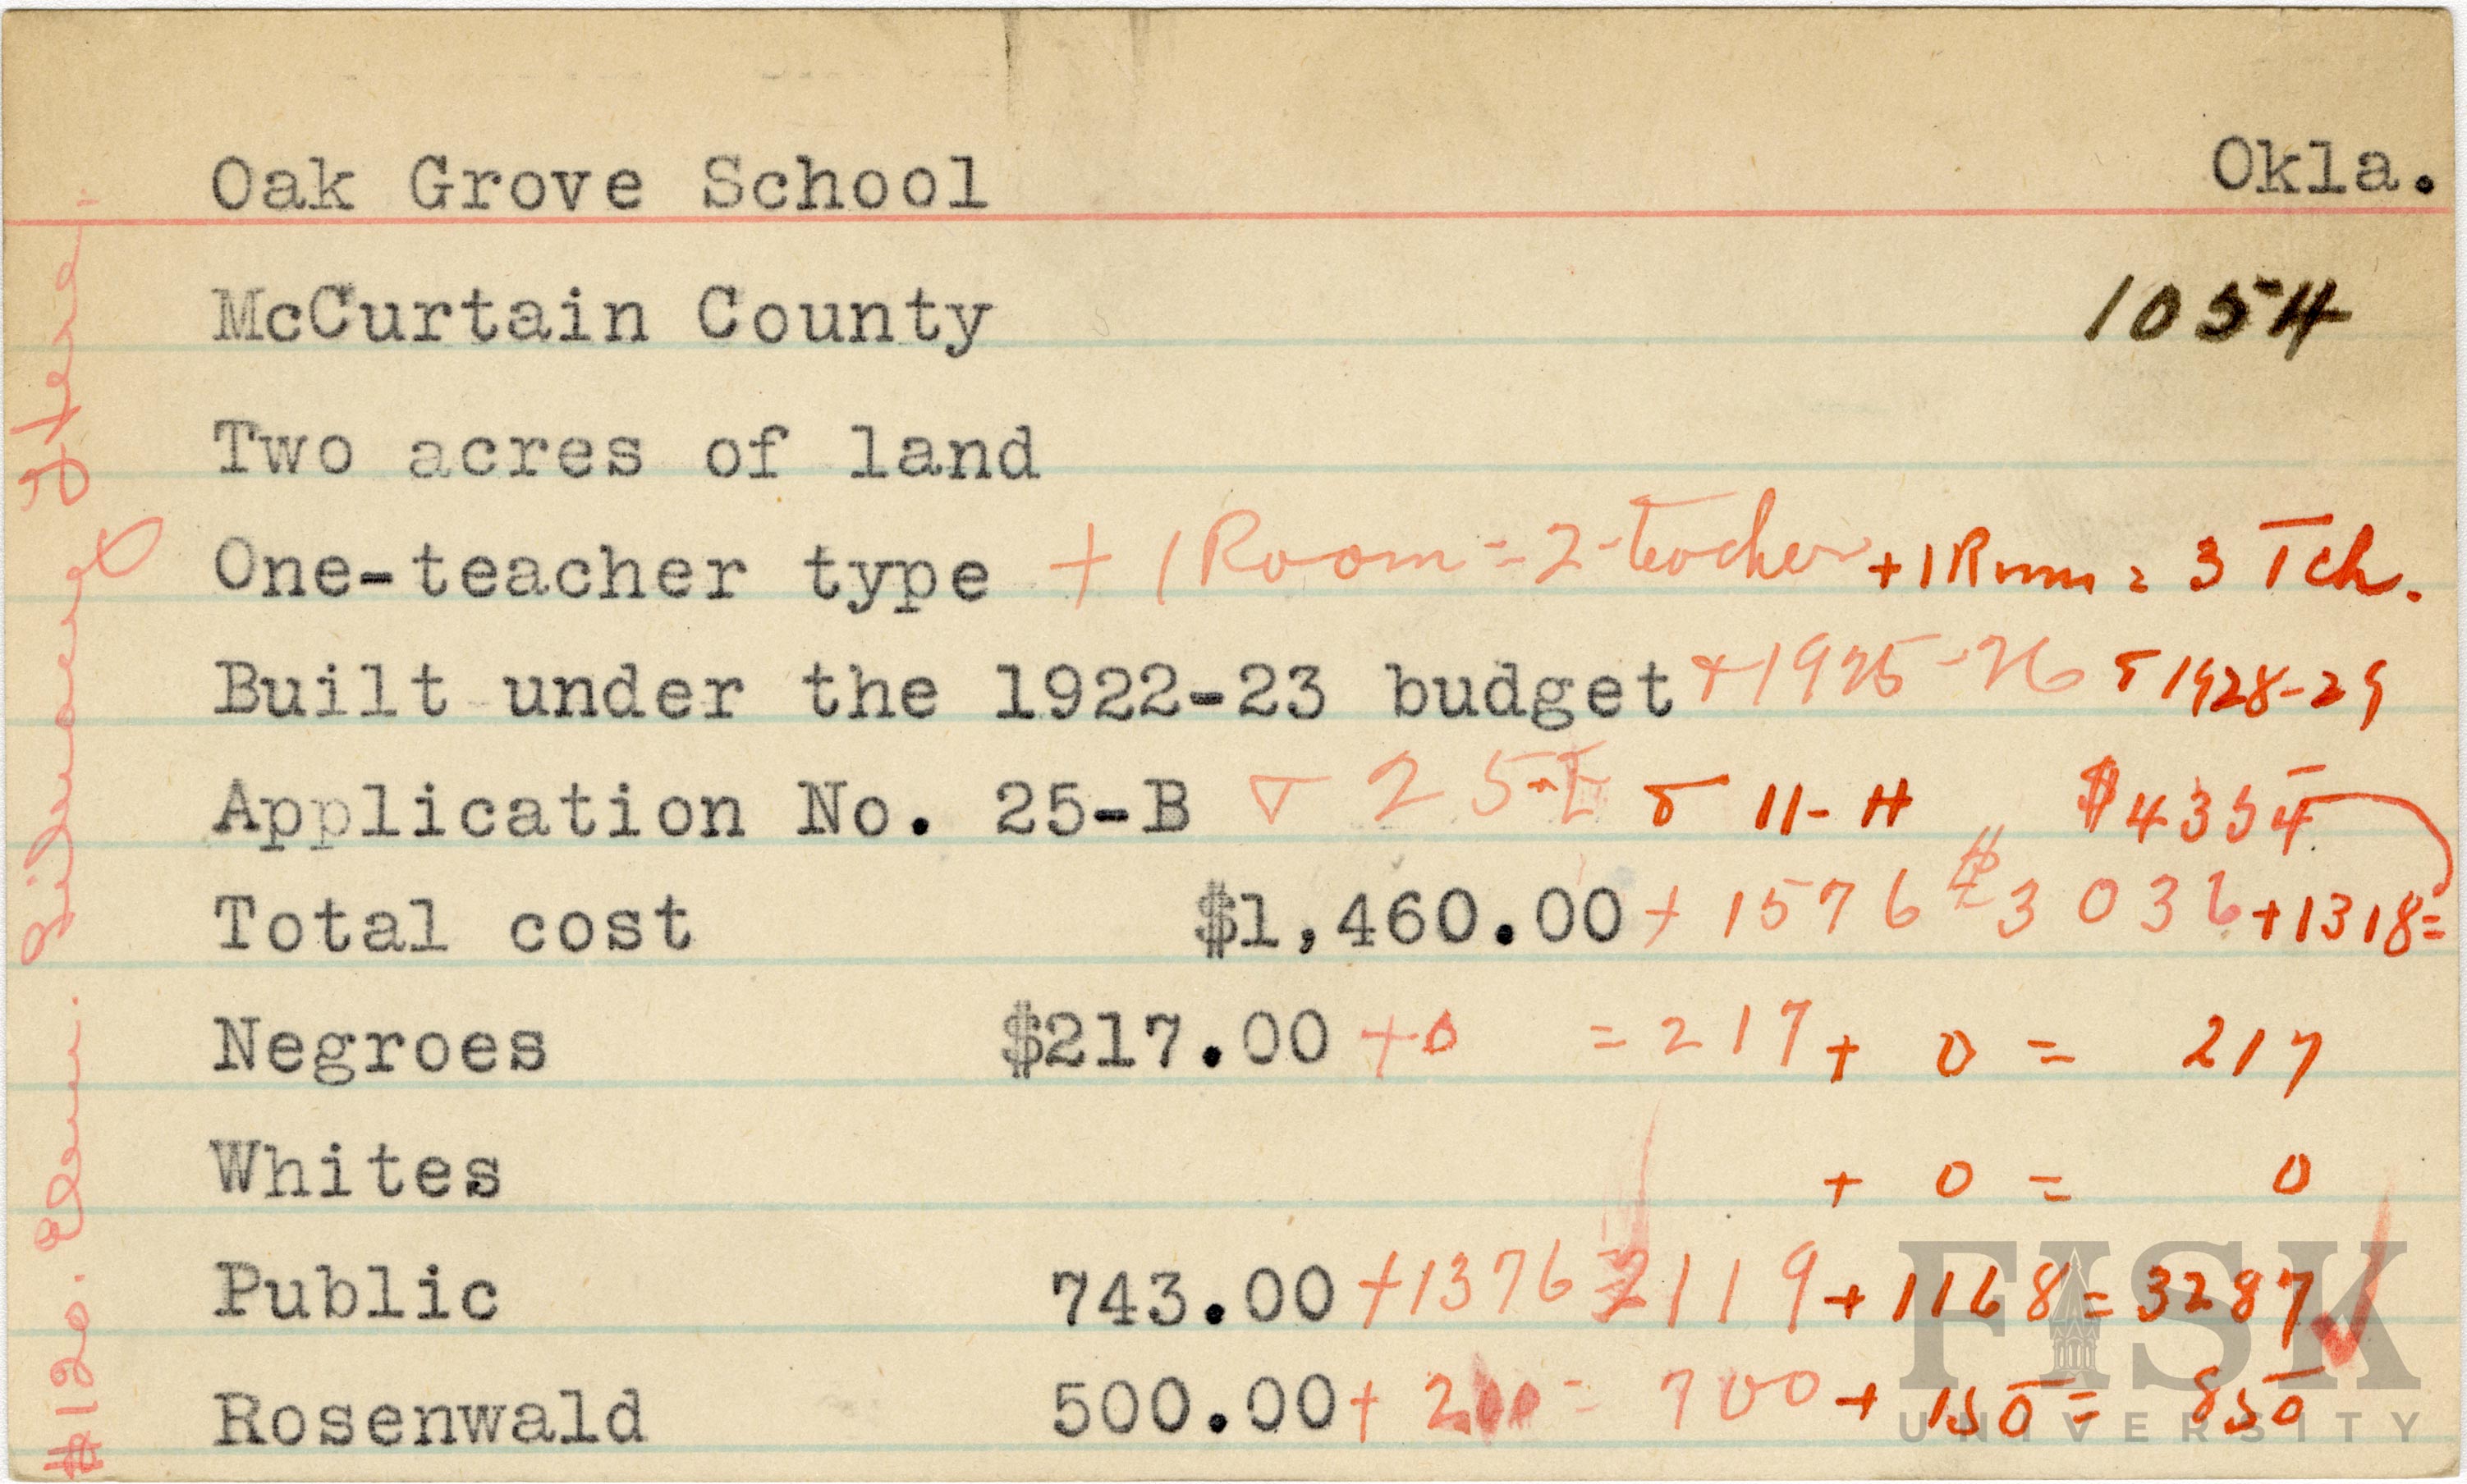 Oak Grove School Okla.
McCurtain County 1054
Two acres of land
One-teacher type + 1 Room = 2-teacher + 1 Room = 3 Tch.
Built under the 1922-23 budget + 1925-26 + 1928-29
Application No. 25-B + 25-E + 11-H $4354
Total cost $1,460.00 + 1576 = $3036 + 1318 =
Negroes $217.00 + 0 = 217 + 0 = 217
Whites + 0 = 0
Public 743.00 + 1376 = 2119 + 1168 = 3287 ✓
Rosenwald 500.00 + 200 = 700 + 150 = 850
#120.
FISK
UNIVERSITY